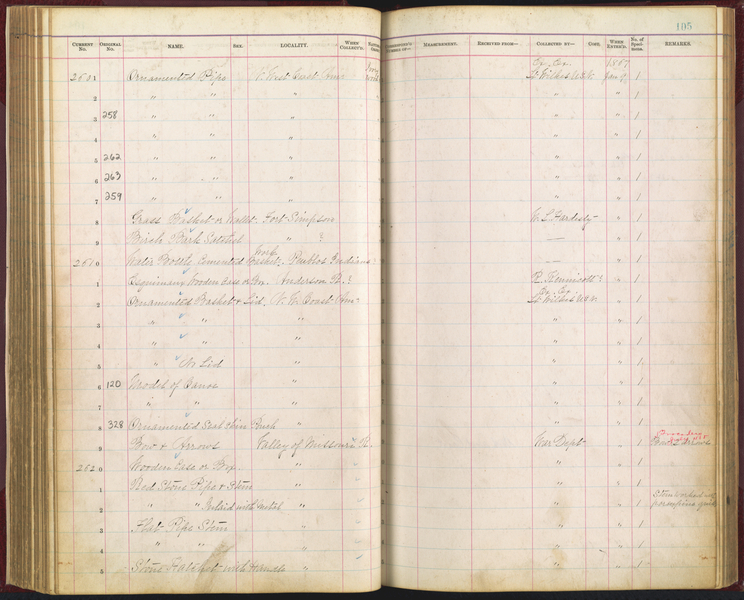 105
CURRENT No. ORIGINAL No. NAME. SEX. LOCALITY. WHEN COLLECT'D. MEASUREMENT. RECEIVED FROM— COLLECTED BY— COST. WHEN ENTER'D. No. of Speci-mens. REMARKS.
Ex. Ex. 1867
2601 Ornamented Pipe N. West Coast Amer Lt Wilkes U.S.N. Jan 9 1
2 " " " " 1
3 258 " " " " 1
4 " " " " 1
5 262 " " " " 1
6 263 " " " " 1
7 259 " " " " 1
8 Grass Basket or Wallet Fort Simpson " 1
9 Birch Bark Satchel " ? — " 1
2610 Water Bottle Cemented Basket Pueblos Indians — " 1
1 Esquimaux Wooden Case or Box Anderson R. ? R. Kennicott ? " 1
Ex. Ex.
2 Ornamented Basket & Lid N. W. Coast Amer Lt Wilkes U.S.N. " 1
3 " " " " " 1
4 " " " " " 1
5 " No Lid " " " 1
6 120 Model of Canoe " " " 1
7 " " " " " 1
8 328 Ornamented " " " 1
9 Bow & Arrows Valley of Missouri R. War Dept " 1
2620 Wooden Case or Box " " " 1
1 Red Stone Pipe & Stem " " " 1
2 " " Inlaid with metal " " " 1 Stem worked with
3 Flat Pipe Stem " " " 1
4 " " " " " 1
5 Stone Hatchet with Handle " " " 1